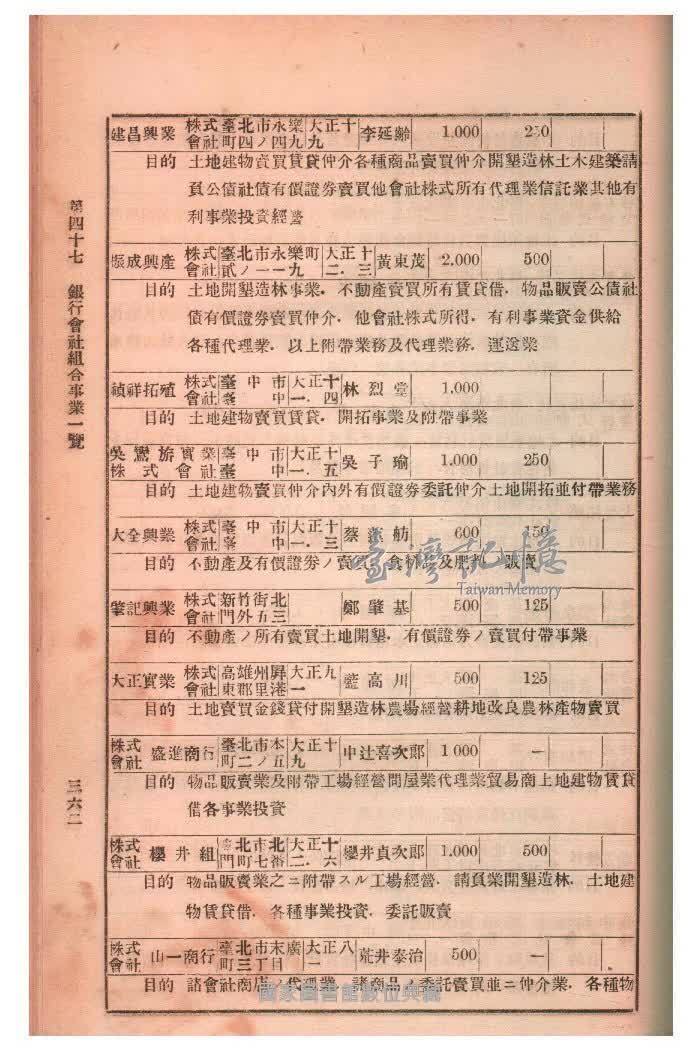 第四十七　銀行會社組合事業一覽
三六二
建昌興業 株式會社 臺北市永樂町四ノ四九 大正十九 李延齡 1,000 250
目的 土地建物賣買賃貸仲介各種商品賣買仲介開墾造林土木建築請
負公債社債有價證券賣買他會社株式所有代理業信託業其他有
利事業投資經營
振成興產 株式會社 臺北市永樂町貳ノ一一九 大正十二．三 黃東茂 2,000 500
目的 土地開墾造林事業．不動產賣買所有賃貸借．物品販賣公債社
債有價證券賣買仲介．他會社株式所得．有利事業資金供給
各種代理業．以上附帶業務及代理業務．運送業
禎祥拓殖 株式會社 臺中市臺中 大正十一．四 林烈堂 1,000
目的 土地建物賣買賃貸．開拓事業及附帶事業
吳鸞旂實業株式會社 臺中市臺中 大正十一．五 吳子瑜 1,000 250
目的 土地建物賣買仲介內外有價證券委託仲介土地開拓並付帶業務
大全興業 株式會社 臺中市臺中 大正十一．三 蔡蓮舫 600 150
目的 不動產及有價證券ノ賣買 食 及肥料ノ販賣
肇記興業 株式會社 新竹街北門外五三 鄭肇基 500 125
目的 不動產ノ所有賣買土地開墾．有價證券ノ賣買付帶事業
大正實業 株式會社 高雄州屏東郡里港 大正九一 藍高川 500 125
目的 土地賣買金錢貸付開墾造林農場經營耕地改良農林產物賣買
株式會社 盛進商行 臺北市本町二ノ五 大正十九 中辻喜次郎 1 000 —
目的 物品販賣業及附帶工場經營問屋業代理業貿易商土地建物賃貸
借各事業投資
株式會社 櫻井組 臺北市北門町七番 大正十二．六 櫻井貞次郎 1,000 500
目的 物品販賣業之ニ附帶スル工場經營．請負業開墾造林．土地建
物賃貸借．各種事業投資．委託販賣
株式會社 山一商行 臺北市末廣町三丁目 大正八二 荒井泰治 500 —
目的 諸會社商店ノ代理業．諸商品ノ委託賣買並ニ仲介業，各種物
臺灣記憶
Taiwan Memory
國家圖書館數位典藏